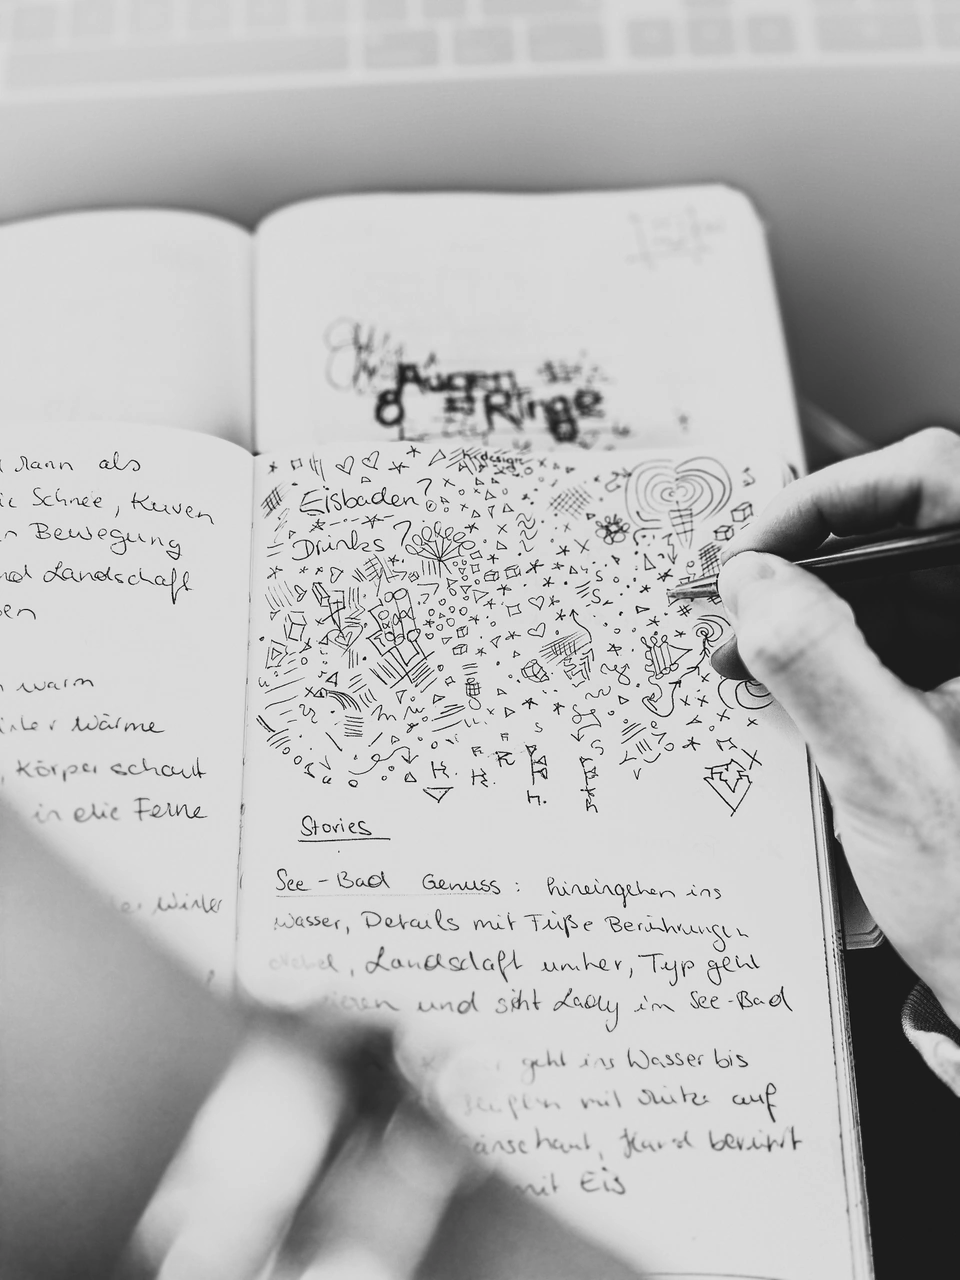 Augen
& Ringe
kann als
Schnee, Kurven
Bewegung
Landschaft
warm
Wärme
, Körper schaut
in die Ferne
Winter
design
Eisbaden?
Drinks?
Stories
See-Bad Genuss: hineingehen ins
Wasser, Details mit Füße Berührungen
Landschaft umher, Typ geht
und siht Lady im See-Bad
geht ins Wasser bis
mit auf
Hand berührt
mit Eis